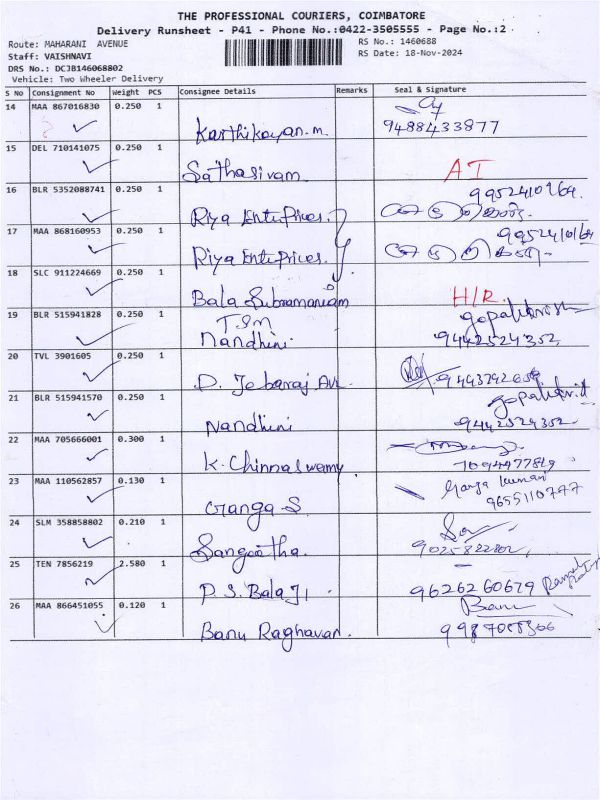 THE PROFESSIONAL COURIERS, COIMBATORE
Delivery Runsheet - P41 - Phone No.:0422-3505555 - Page No.:2
Route: MAHARANI AVENUE RS No.: 1460688
Staff: VAISHNAVI RS Date: 18-Nov-2024
DRS No.: DCJB146068802
Vehicle: Two Wheeler Delivery
S No Consignment No Weight PCS Consignee Details Remarks Seal & Signature
14 MAA 867016830 0.250 1
Karthikeyan.m 9488433877
15 DEL 710141075 0.250 1
Sathasivam AT
16 BLR 5352088741 0.250 1
Riya Enterprices.
17 MAA 868160953 0.250 1
Riya Enterprices.
18 SLC 911224669 0.250 1
Bala Subramaniam H/R
19 BLR 515941828 0.250 1
TSM
Nandhini. 9442524352
20 TVL 3901605 0.250 1
D. Jebaraj
21 BLR 515941570 0.250 1
Nandhini 9442524352
22 MAA 705666001 0.300 1
K. Chinnaswamy
23 MAA 110562857 0.130 1 Ganga kumari
Ganga S 9655110747
24 SLM 358858802 0.210 1
Sangeetha.
25 TEN 7856219 2.580 1
P.S. Balaji 9626260679
26 MAA 866451055 0.120 1 Banu
Banu Raghavan.